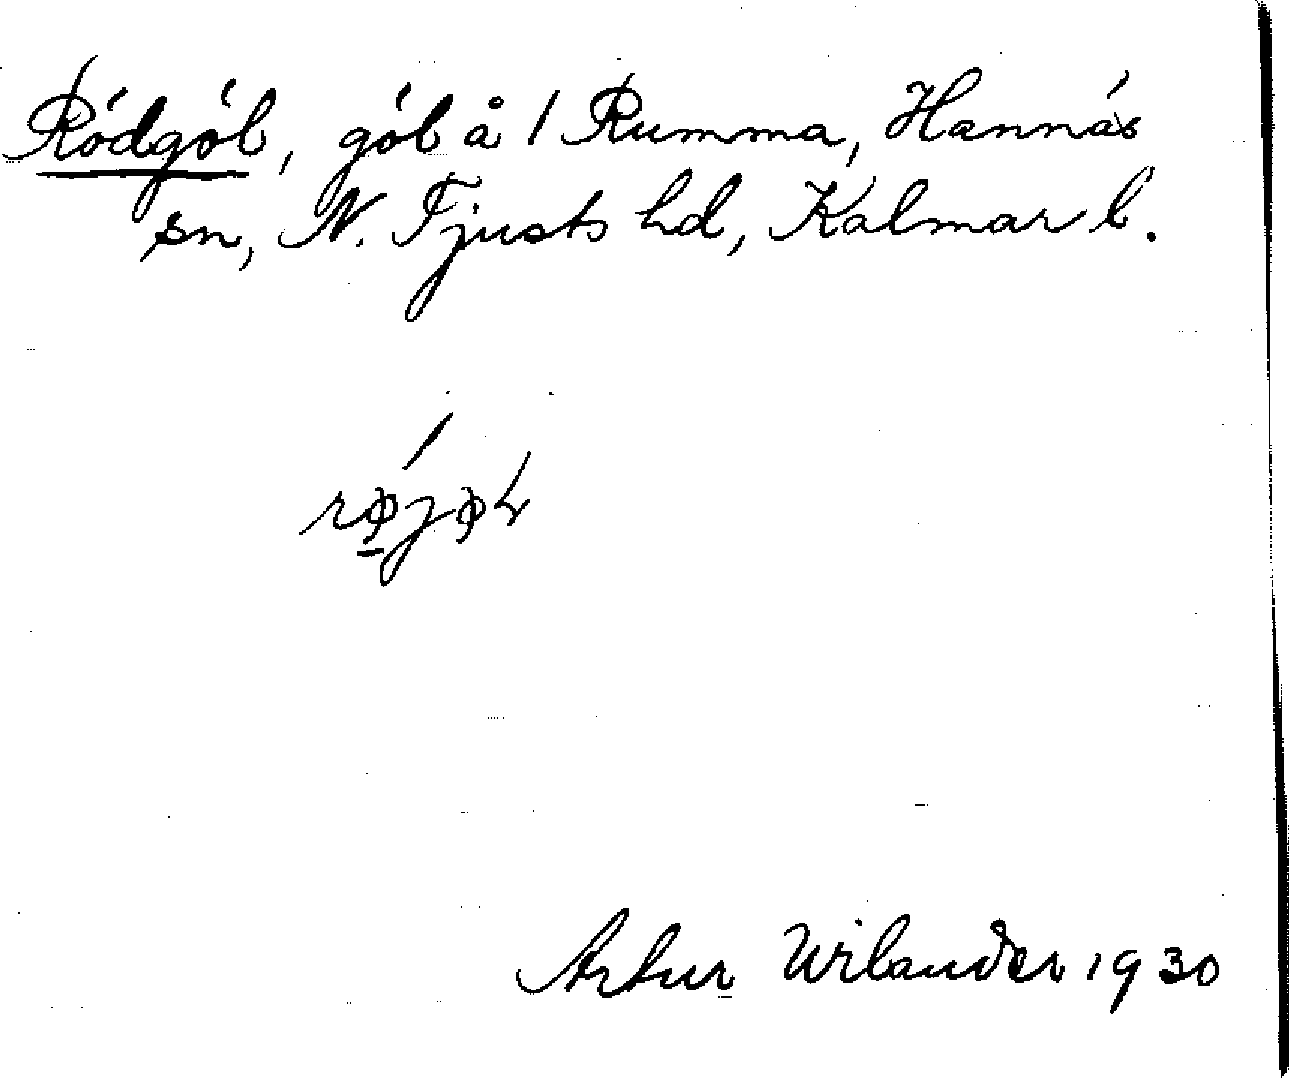 Rödgöl, göl å 1 Rumma, Hannäs
sn, N. Tjusts hd, Kalmar l.
Artur Wilander 1930